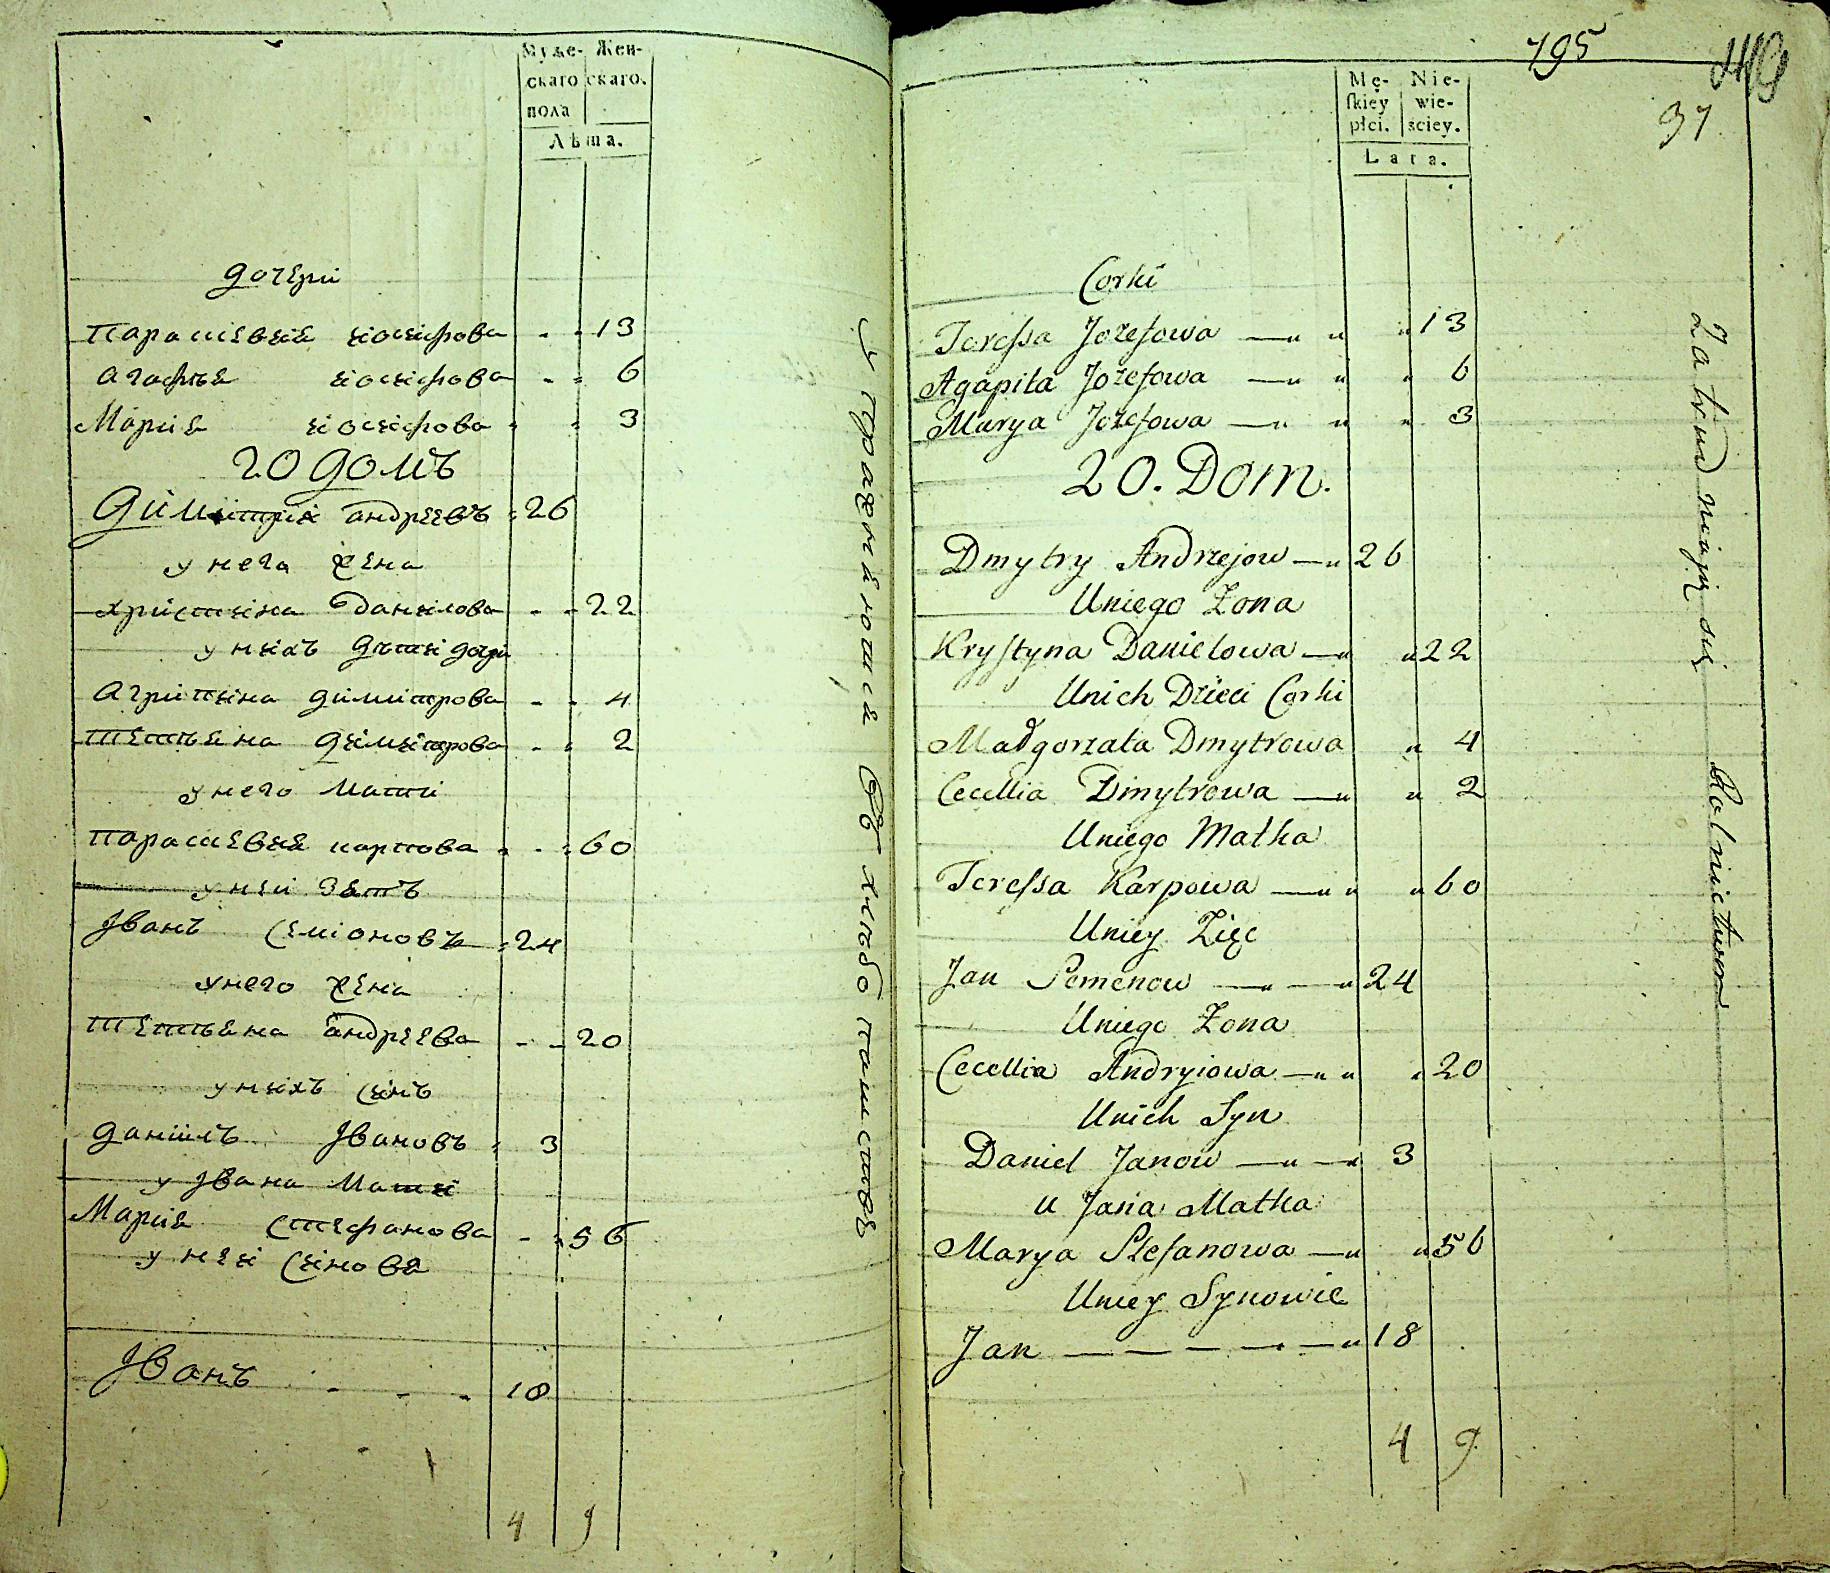 Муже- Жен-
скаго скаго.
пола
Лѣта.
дочери
Парасцевия иосифова - - 13
агафия иосифова - - 6
Мария иосифова - - 3
20 домъ
Димитрий андреевъ - 26
у него жена
христина данилова - - 22
у нихъ дѣти дочери
агрипина димитрова - - 4
тетьяна димитрова - - 2
у него мати
парасцевия карпова - - 60
у ней зять
Іванъ Семіоновъ - 24
у него жена
тетьяна андреева - - 20
у нихъ синъ
данiилъ Івановъ - 3
у Івана мати
Мария Стефанова - - 56
у ней синове
Іванъ - - - 18
4 9
упражняются въ хлѣбопашествѣ
795
37
Mę- Nie-
ſkiey wie-
płci. sciey.
Lata.
Corki
Tereſsa Jozefowa — „ „ „ 13
Agapita Jozefowa — „ „ „ 6
Marya Jozefowa — „ „ „ 3
20. Dom.
Dmytry Andrzejow — „ 26
Uniego Zona
Kryſtyna Danielowa — „ „ 22
Unich Dzieci Corki
Małgorzata Dmytrowa „ 4
Cecellia Dmytrowa — „ „ 2
Uniego Matka
Tereſsa Karpowa — „ „ „ 60
Uniey Zięc
Jan Semenow — „ — „ 24
Uniego Zona
Cecellia Andryiowa — „ „ „ 20
Unich Syn
Daniel Janow — „ — „ 3
u Jana Matka
Marya Stefanowa — „ „ 56
Uniey Synowie
Jan — — — — — „ 18
4 9
Zatrudniają się Rolnictwem